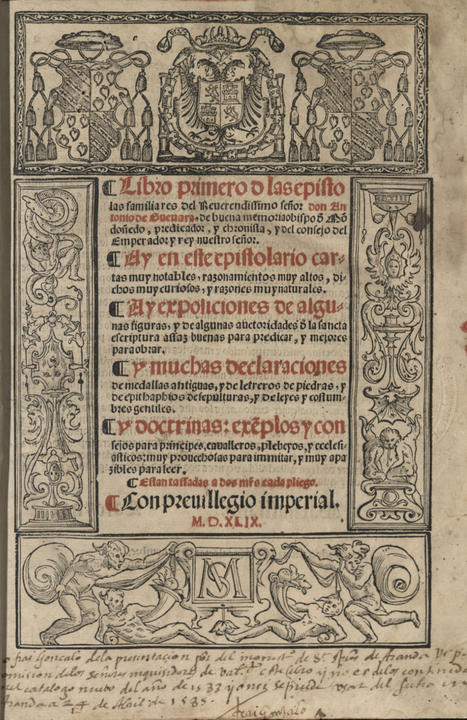 ¶ Libro primero d̄ las episto
las familiares del Reuerendissimo señor don An
tonio de Gueuara, de buena memoria obispo d̄ Mō
doñedo, predicador, y chronista, y del consejo del
Emperador y rey nuestro señor.
¶ Ay en este epistolario car-
tas muy notables, razonamientos muy altos, di-
chos muy curiosos, y razones muy naturales.
¶ Ay exposiciones de algu-
nas figuras, y de algunas auctoridades d̄ la sancta
escriptura assaz buenas para predicar, y mejores
para obrar.
¶ Ay muchas declaraciones
de medallas antiguas, y de letreros de piedras, y
de epithaphios de sepulturas, y de leyes y costum-
bres gentiles.
¶ Ay doctrinas: exēplos y con
sejos para principes, caualleros, plebeyos, y ecclesi-
asticos: muy prouechosas para immitar, y muy apa
zibles para leer.
¶ Estan tassadas a dos mr̄s cada pliego.
¶ Con preuillegio imperial.
M. D. XLIX.
SM
frai Gonçalo dela presentacion del de Aranda
de los señores inquisidores de
catalogo nueuo del año de 1583
Aranda a 24 de Abril de 1585.
frai gōçalo